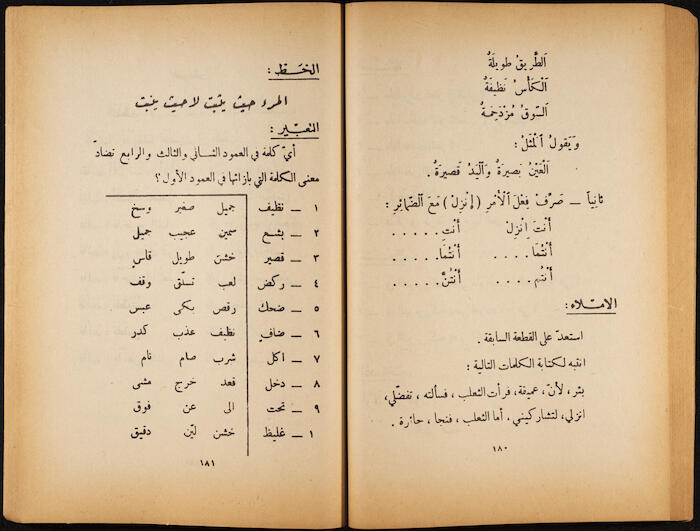 اَلطَّرِيقُ طَوِيلَةٌ
اَلْكَأْسُ نَظِيفَةٌ
اَلسُّوقُ مُزْدَحِمَةٌ
وَيَقُولُ اَلْمَثَلُ :
اَلْعَيْنُ بَصِيرَةٌ وَاَلْيَدُ قَصِيرَةٌ .
ثَانِياً — صَرِّفْ فِعْلَ اَلْأَمْرِ ( إِنْزِلْ ) مَعَ اَلضَّمَائِرِ :
أَنْتَ إِنْزِلْ أَنْتِ . . . . .
أَنْتُمَا . . . . أَنْتُمَا . . . . .
أَنْتُم . . . . أَنْتُنَّ . . . . .
الامْلاء :
استعدّ على القطعة السابقة .
انتبه لكتابة الكلمات التالية :
بئر ، لأنّ ، عميقة ، فرأت الثعلب ، فسألته ، تفضّلي ،
انزلي ، لتشاركيني ، أما الثعلب ، فنجا ، حائرة .
١٨٠
الخَـط :
المرء حيث يثبت لا حيث ينبت
التعبير :
أيّ كلمة في العمود الثاني والثالث والرابع تضادّ
معنى الكلمة التي بازائها في العمود الأول ؟
١ — نظيف جميل صغير وسخ
٢ — بشع سمين عجيب جميل
٣ — قصير خشن طويل قاسٍ
٤ — ركض لعب تسلّق وقف
٥ — ضحك رقص بكى عبس
٦ — صافٍ نظيف عذب كدر
٧ — اكل شرب صام نام
٨ — دخل قعد خرج مشى
٩ — تحت الى عن فوق
١ — غليظ خشن ليّن دقيق
١٨١